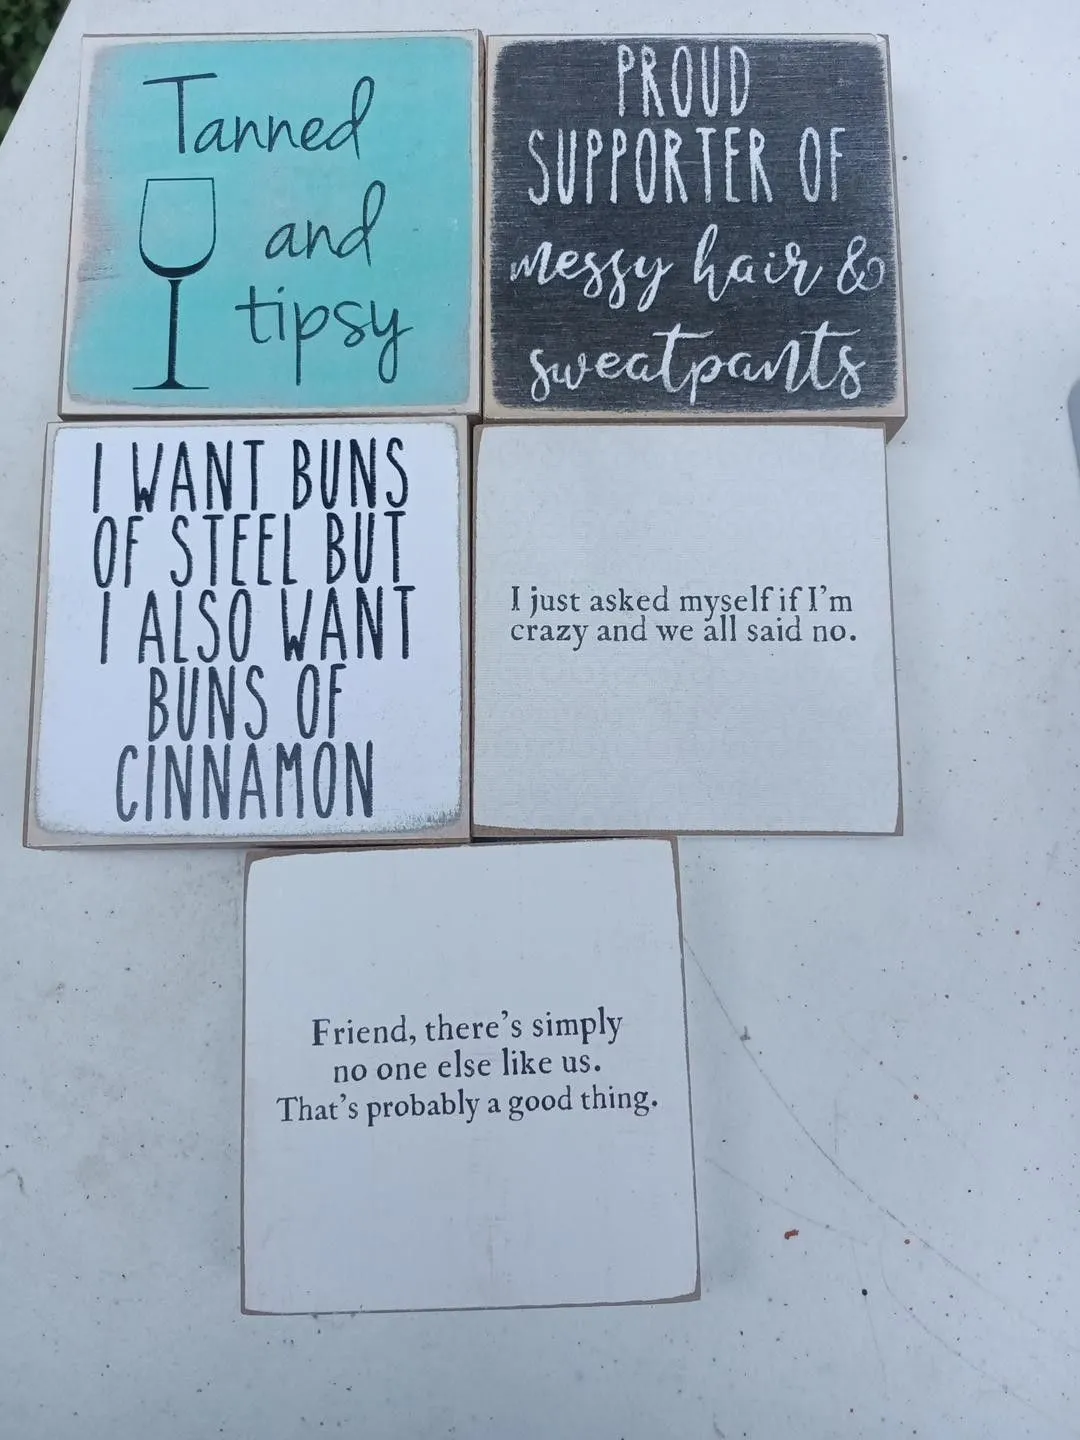 Tanned
and
tipsy
PROUD
SUPPORTER OF
messy hair &
sweatpants
I WANT BUNS
OF STEEL BUT
I ALSO WANT
BUNS OF
CINNAMON
I just asked myself if I'm
crazy and we all said no.
Friend, there's simply
no one else like us.
That's probably a good thing.